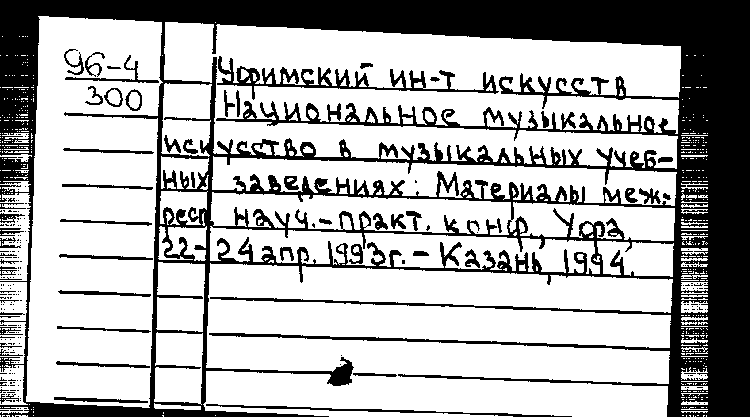 96-4 Уфимский ин-т искусств
300 Национальное музыкальное
искусство в музыкальных учеб-
ных заведениях: Материалы меж-
респ. науч.-практ. конф., Уфа,
22-24 апр. 1993г. - Казань, 1994.